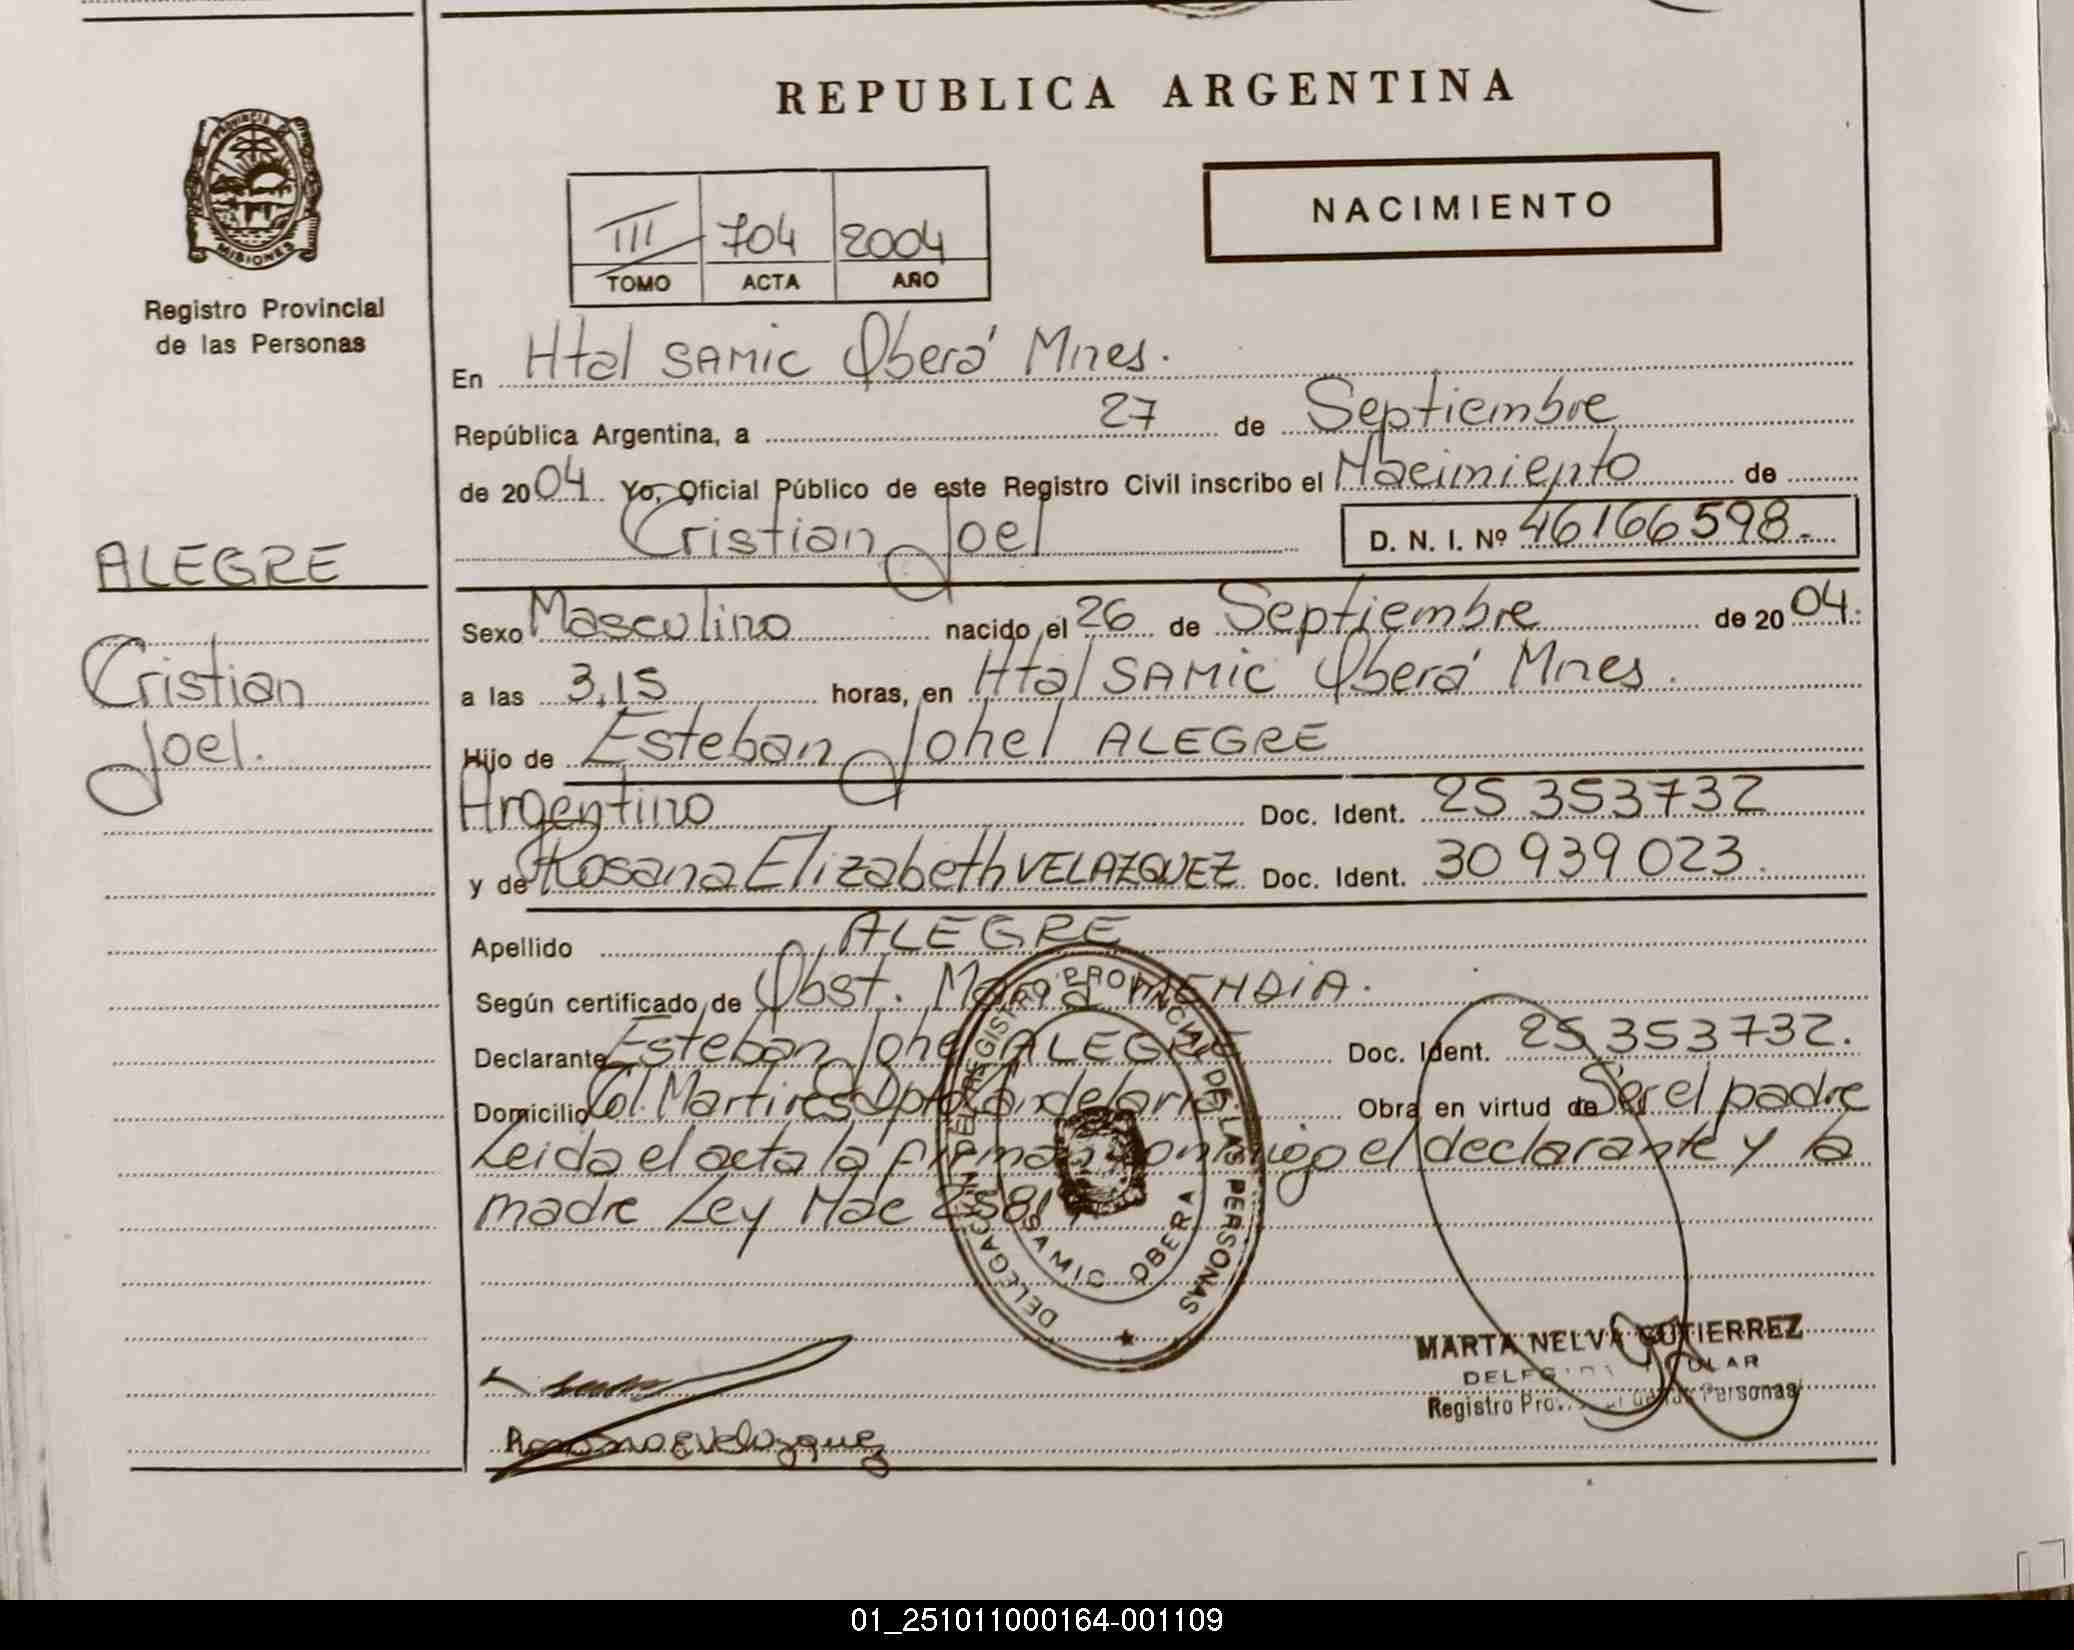 REPUBLICA ARGENTINA
PROVINCIA DE MISIONES
Registro Provincial
de las Personas
NACIMIENTO
III 704 2004
TOMO ACTA AÑO
En Htal SAMIC Oberá Mnes.
República Argentina, a 27 de Septiembre
de 2004 Yo, Oficial Público de este Registro Civil inscribo el Nacimiento de
Cristian Joel D. N. I. Nº 46166598.-
ALEGRE
Cristian
Joel.
Sexo Masculino nacido el 26 de Septiembre de 2004.
a las 3,15 horas, en Htal SAMIC Oberá Mnes.
Hijo de Esteban Johel ALEGRE
Argentino Doc. Ident. 25 353732
y de Rosana Elizabeth VELAZQUEZ Doc. Ident. 30 939 023.
Apellido ALEGRE
Según certificado de Obst. MENDIA.
Declarante Esteban Johel ALEGRE Doc. Ident. 25 353732.
Domicilio Col. Martires Dpto Candelaria Obra en virtud de Ser el padre
Leida el acta la firman conmigo el declarante y la
madre Ley Nac
DELEGACION DEL REGISTRO PROVINCIAL DE LAS PERSONAS
SAMIC OBERA
MARTA NELVA GUTIERREZ
Registro Personas
Rosana E Velazquez
01_251011000164-001109